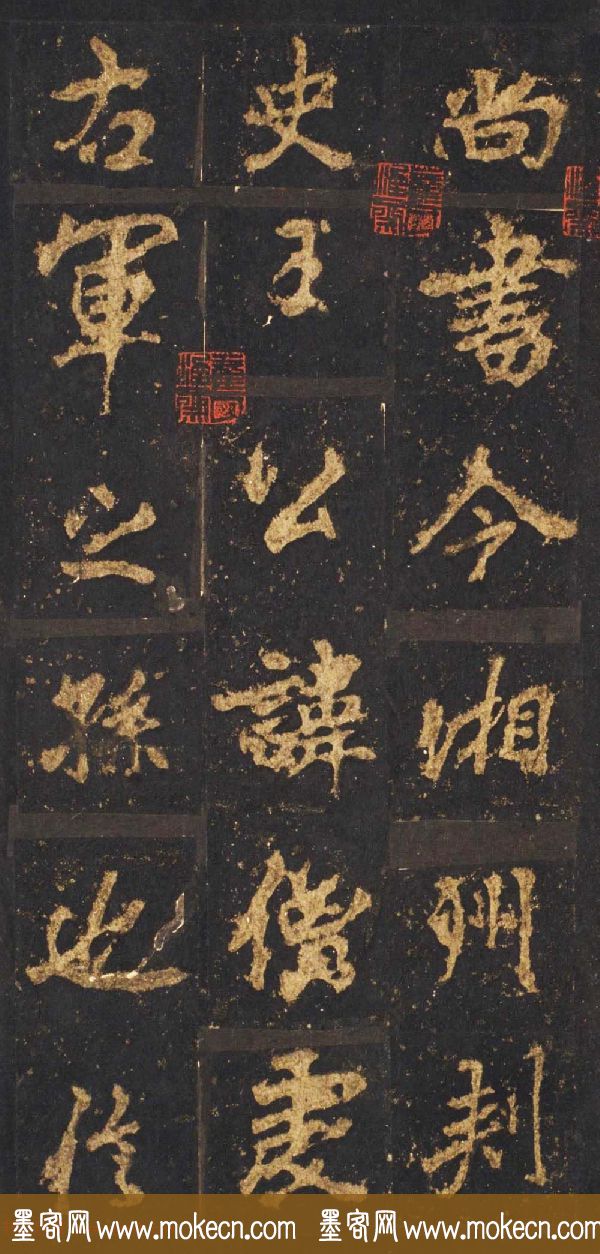 尚書令湘州刺
史王公諱僧虔
右軍之孫也信
墨客网 www.mokecn.com 墨客网 www.mokecn.com